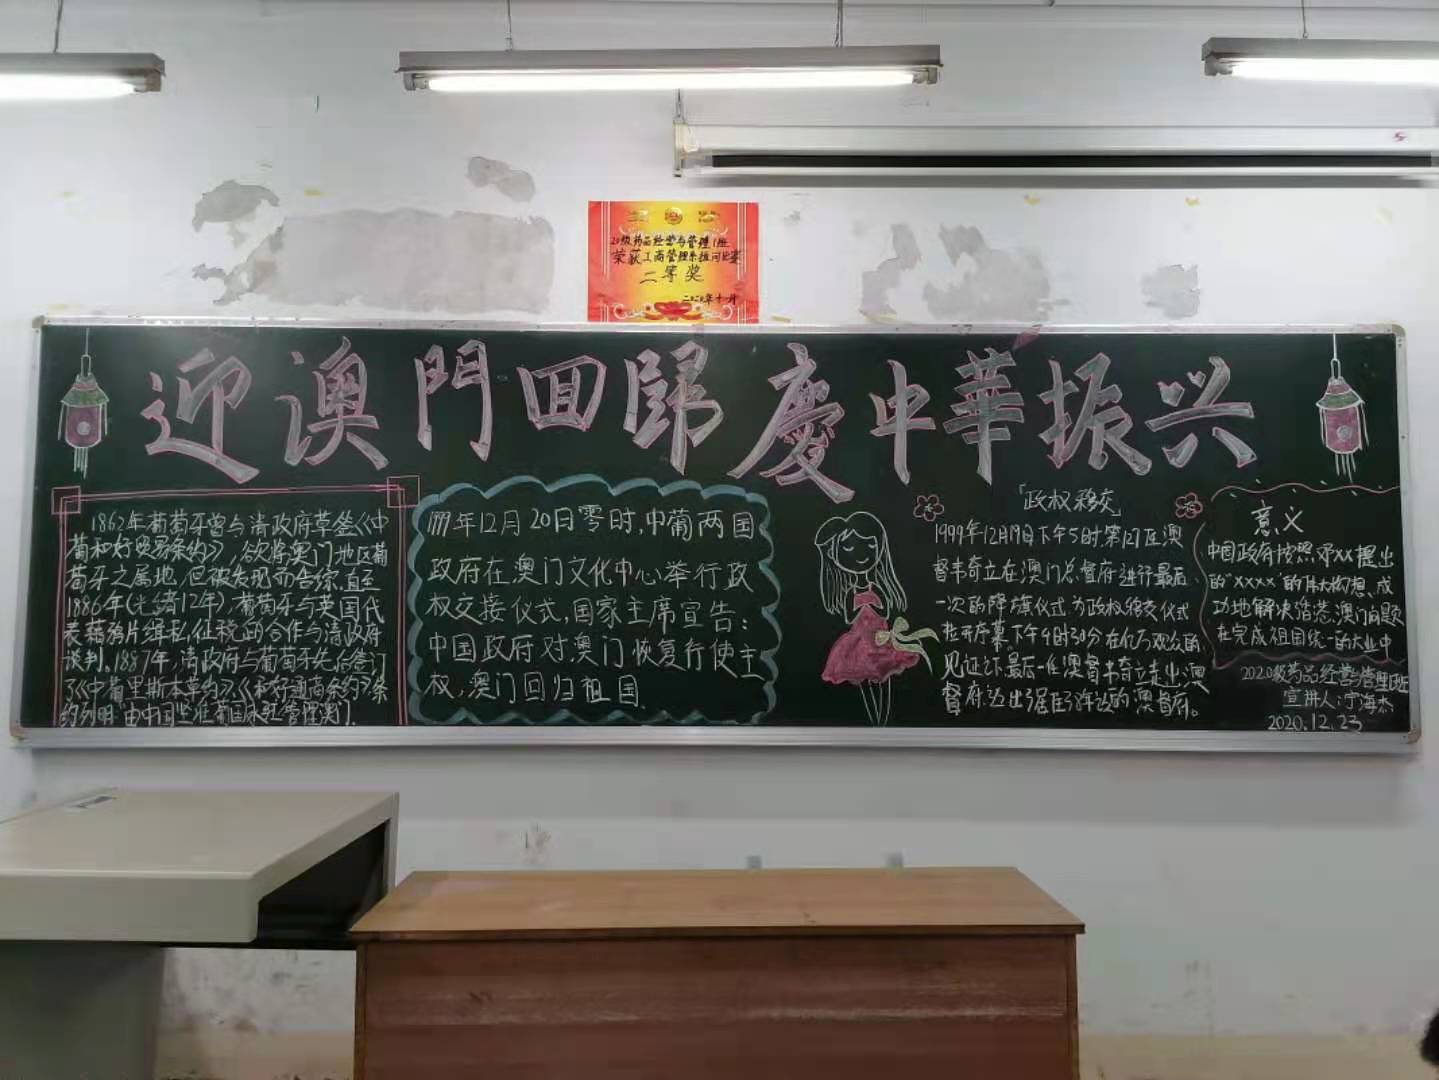 20级药品经营与管理1班
荣获工商管理系拔河比赛
二等奖
二〇二〇年十一月
迎澳門回歸慶中華振兴
1862年葡萄牙曾与清政府草签《中
葡和好贸易条约》,欲将澳门地区葡
萄牙之属地,但被发现而告终.直至
1886年(光绪12年),葡萄牙与英国代
表藉鸦片缉私,征税的合作与清政府
谈判。1887年,清政府与葡萄牙先后签订
了《中葡里斯本草约》、《和好通商条约》条
约列明:由中国坚准葡国永驻管理澳门.
1999年12月20日零时,中葡两国
政府在澳门文化中心举行政
权交接仪式,国家主席宣告:
中国政府对澳门恢复行使主
权,澳门回归祖国.
「政权移交」
1999年12月19日下午5时第127任澳
督韦奇立在澳门总督府进行最后
一次的降旗仪式,为政权移交仪式
拉开序幕。下午4时30分在亿万观众的
见证下,最后一任澳督韦奇立走出澳
督府.
意义
中国政府按照邓xx提出
的"xxxx"的伟大构想,成
功地解决香港、澳门问题
在完成祖国统一的大业中
2020级药品经营与管理1班
宣讲人:宁海杰
2020.12.23